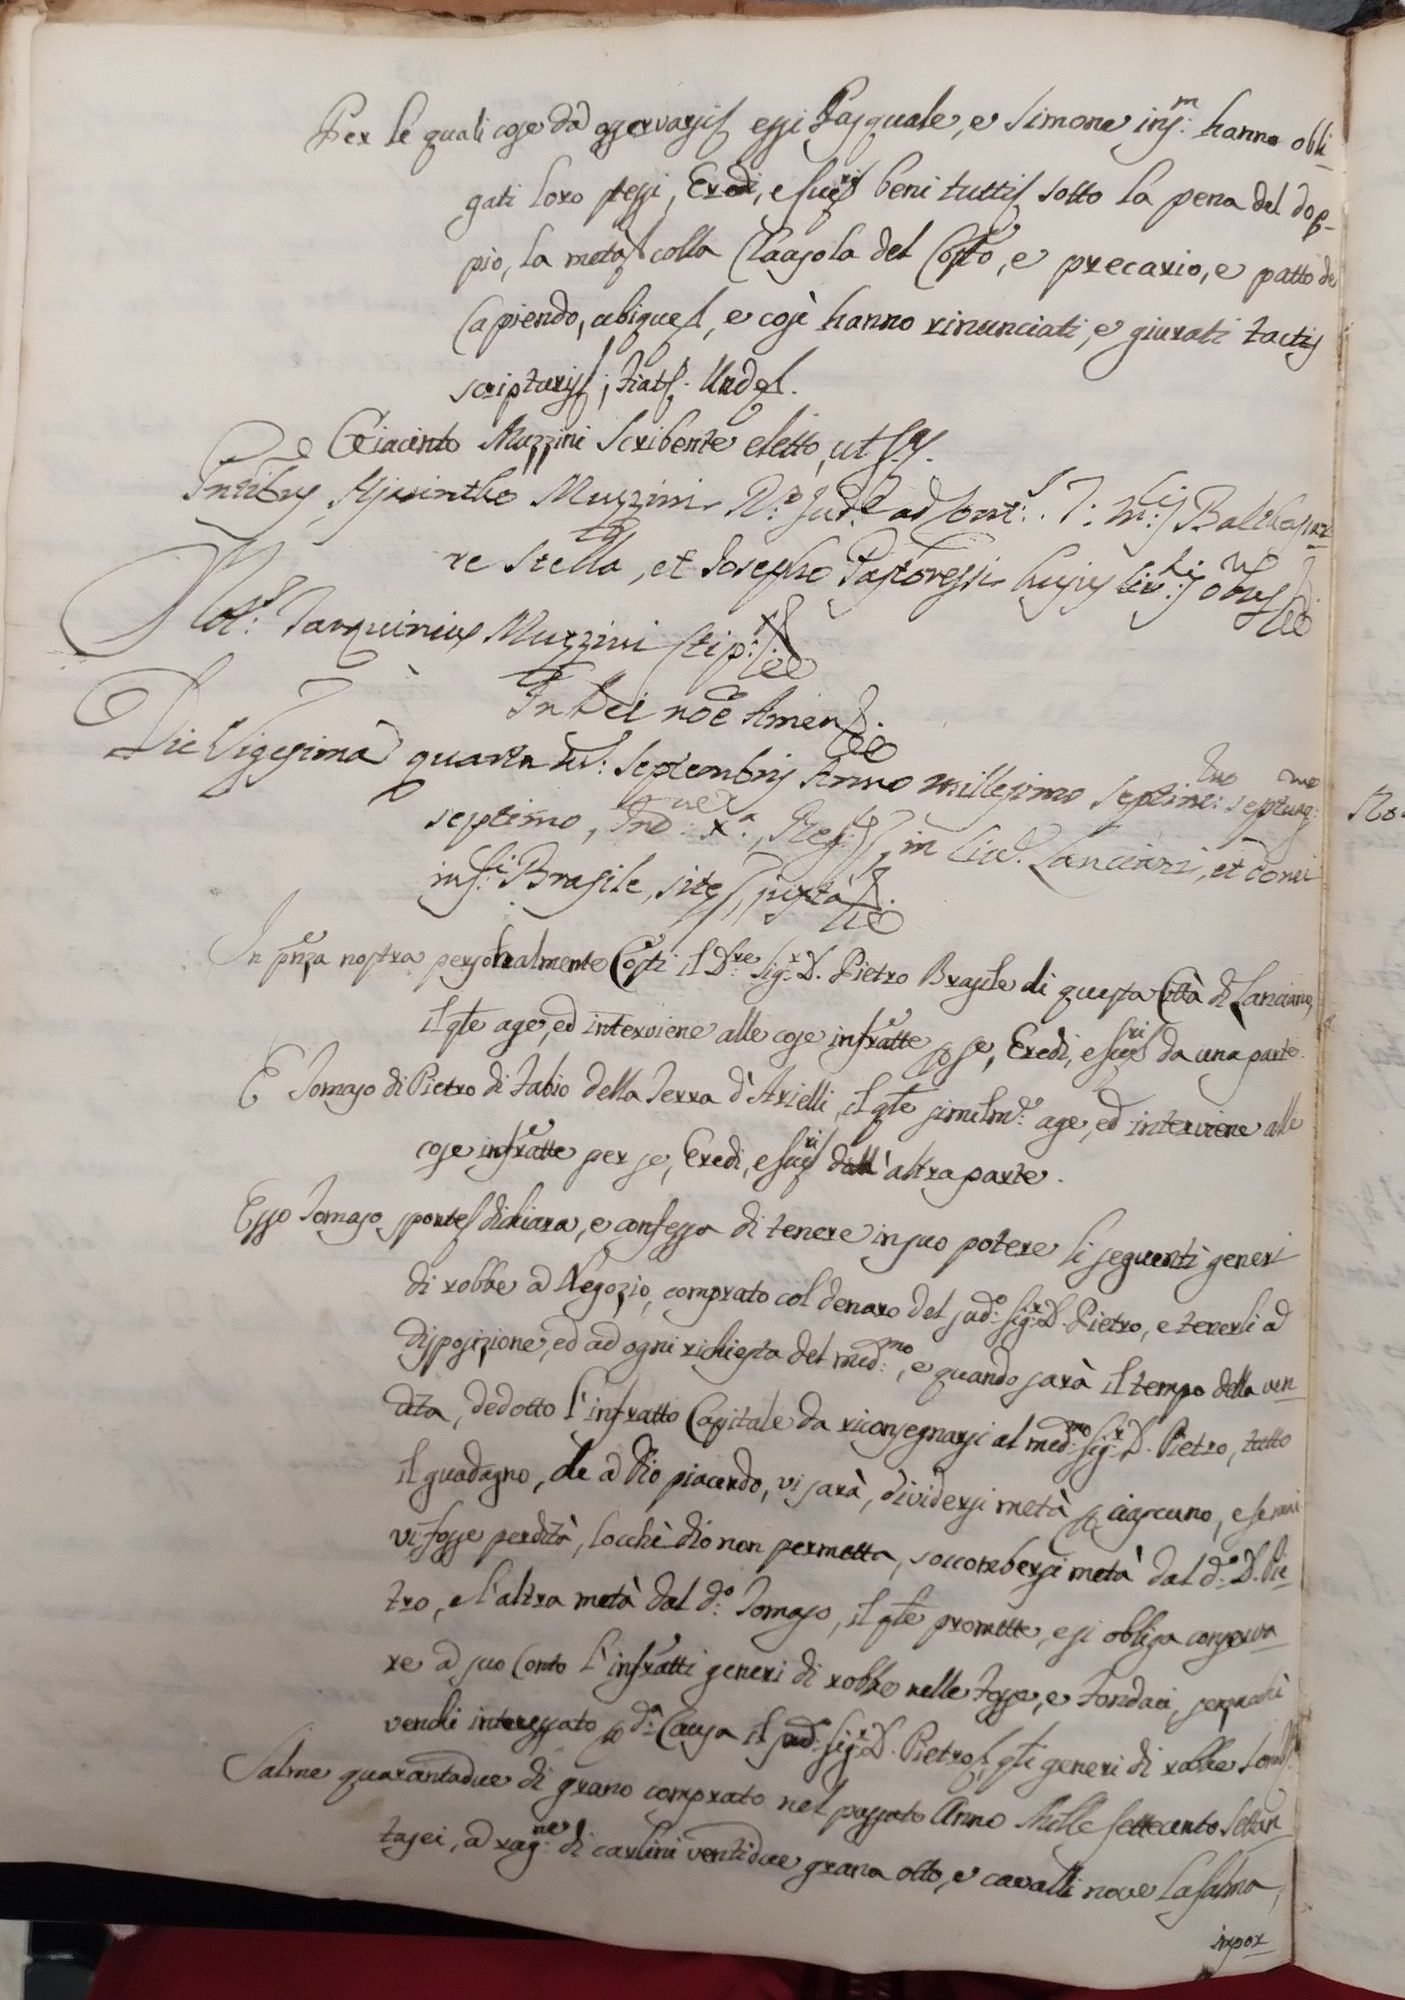 Per le quali cose da osservarsi essi Pasquale, e Simone ins:m hanno obli-
gati loro stessi, Eredi, e sucri beni tutti sotto la pena del dop-
pio, la metà colla Clausola del Costo, e precario, e patto de
Capiendo, ubique, e così hanno rinunciati, e giurati tactis
scripturis; fiat. Unde.
Giacinto Muzzini Scribente eletto, ut S.a
Pntibus Hyacintho Muzzini R.o Jud.e ad Cont:. T: M:cis Balthasar-
re Stella, et Josepho Pastoressi hujus Civ:
Not:s Tarquinius Muzzini stip:s
In Dei nōe Amen
Die Vigesima quarta Ms: Septembris Anno millesimo septinc:mo septuag:mo
septimo, Ind:ne X.a, Reg:, in Civ.e Lanciani, et domi
inf:i Brasile, sites, juxta
In pnza nostra personalmente Costi il D:re Sig:r D. Pietro Brasile di questa Città di Lanciano,
il qle age, ed interviene alle cose infratte p se, Eredi, e sucri da una parte.
E Tomaso di Pietro di Fabio della Terra d'Arielli, il qle similm:e age, ed interviene alle
cose infratte per se, Eredi, e sucri dall'altra parte.
Esso Tomaso sponte dichiara, e confessa di tenere in suo potere li seguenti generi
di robbe a Negozio, comprato col denaro del sud:o Sig:r D. Pietro, e tenerli a
disposizione, ed ad ogni richiesta del med:mo, e quando sarà il tempo della ven-
dita, dedotto l'infratto Capitale da riconsegnarsi al med:mo Sig:r D. Pietro, tutto
il guadagno, che a Dio piacendo, vi sarà, dividersi metà p ciascuno, e se mai
vi fosse perdità, locchè Dio non permetta, soccombersi metà dal d:o D. Pie-
tro, e l'altra metà dal d:o Tomaso, il qle promette, e si obliga conserva-
re a suo Conto l'infratti generi di robbe nelle fosse, e fondaci,
vendi interessato p d:a Causa il sud:o Sig:r D. Pietro, qli generi di robbe sono
Salme quarantadue di grano comprato nel passato Anno Mille settecento settan-
tasei, a rag:ne di carlini ventidue grana otto, e cavalli nove la salma,
impor-